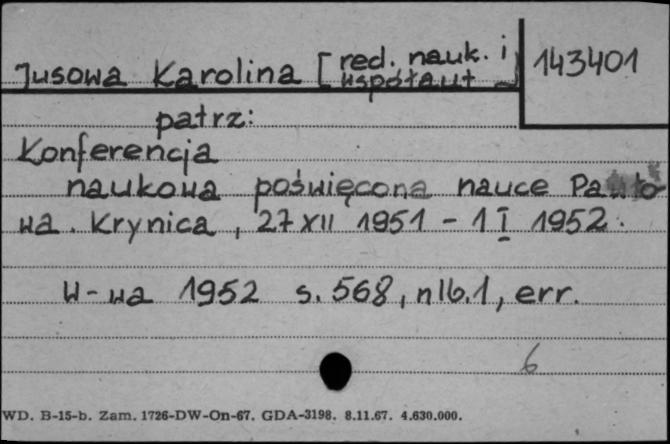 Jusowa Karolina [red. nauk. i współaut.]
143401
patrz:
Konferencja
naukowa poświęcona nauce Pawło-
wa. Krynica, 27 XII 1951 - 1 I 1952.
W-wa 1952 s. 568, nlb. 1, err.
6
WD. B-15-b. Zam. 1726-DW-On-67. GDA-3198. 8.11.67. 4.630.000.